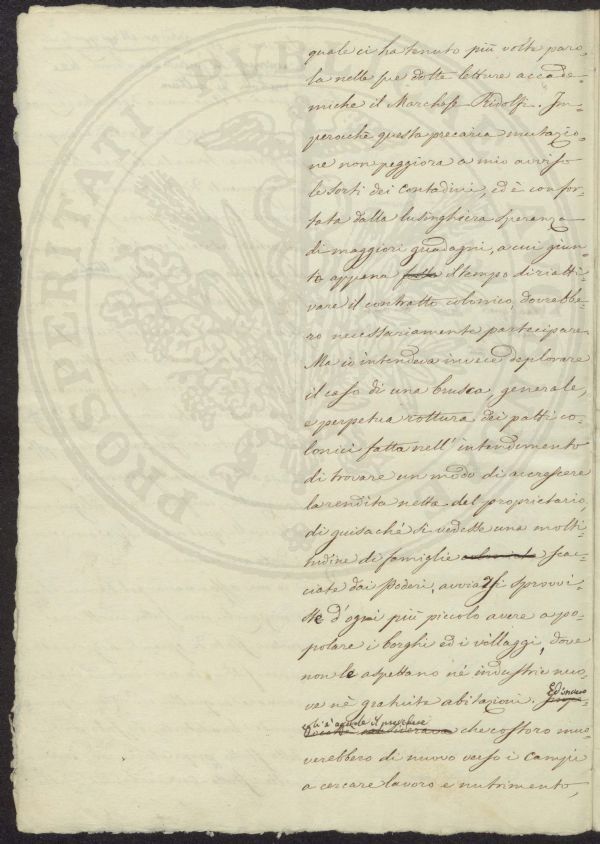 quale ci ha tenuto più volte paro-
la nelle sue dotte letture accade-
miche il Marchese Ridolfi. Im-
perocchè questa precaria mutazio-
ne non peggiora a mio avviso
le sorti dei contadini, ed è confor-
tata dalla lusinghiera speranza
di maggiori guadagni, a cui giun-
to appena il tempo di riatti-
vare il contratto colonico, dovrebbe-
ro necessariamente partecipare.
Ma io intendeva invece deplorare
il caso di una brusca, generale,
e perpetua rottura dei patti co-
lonici fatta nell' intendimento
di trovare un modo di accrescere
la rendita netta del proprietario,
di guisachè si vedesse una molti-
tudine di famiglie scac-
ciate dai Poderi, avviarsi sprovvi-
ste d'ogni più piccolo avere a po-
polare i borghi ed i villaggi, dove
non le aspettano nè industrie nuo-
ve nè gratuite abitazioni. Ed invero
che costoro muo-
verebbero di nuovo verso i campi
a cercare lavoro e nutrimento,
PROSPERITATI PVBLICAE